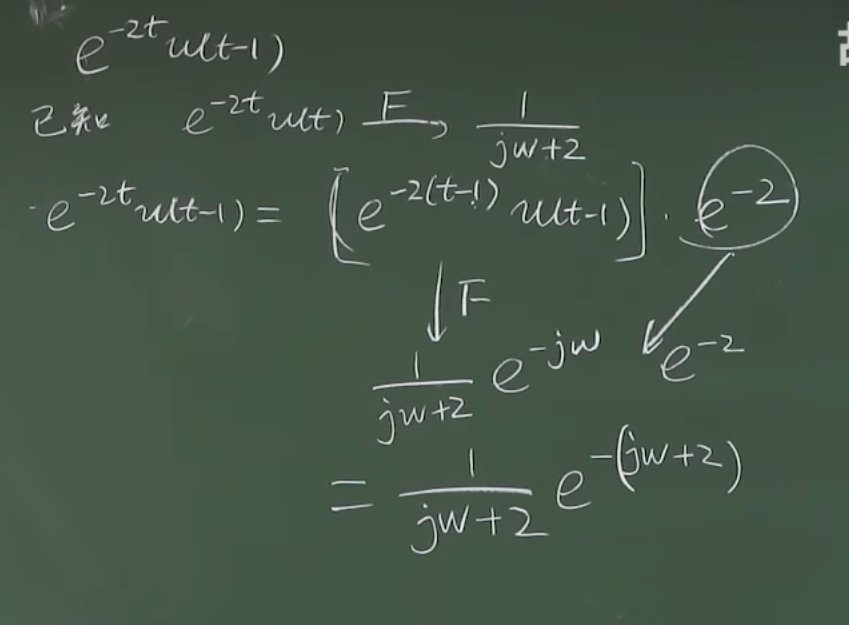 e^{-2t} u(t-1)
已知 e^{-2t} u(t) \xrightarrow{F} \frac{1}{jw+2}
e^{-2t} u(t-1) = [e^{-2(t-1)} u(t-1)] · e^{-2}
↓ F
\frac{1}{jw+2} e^{-jw} e^{-2}
= \frac{1}{jw+2} e^{-(jw+2)}